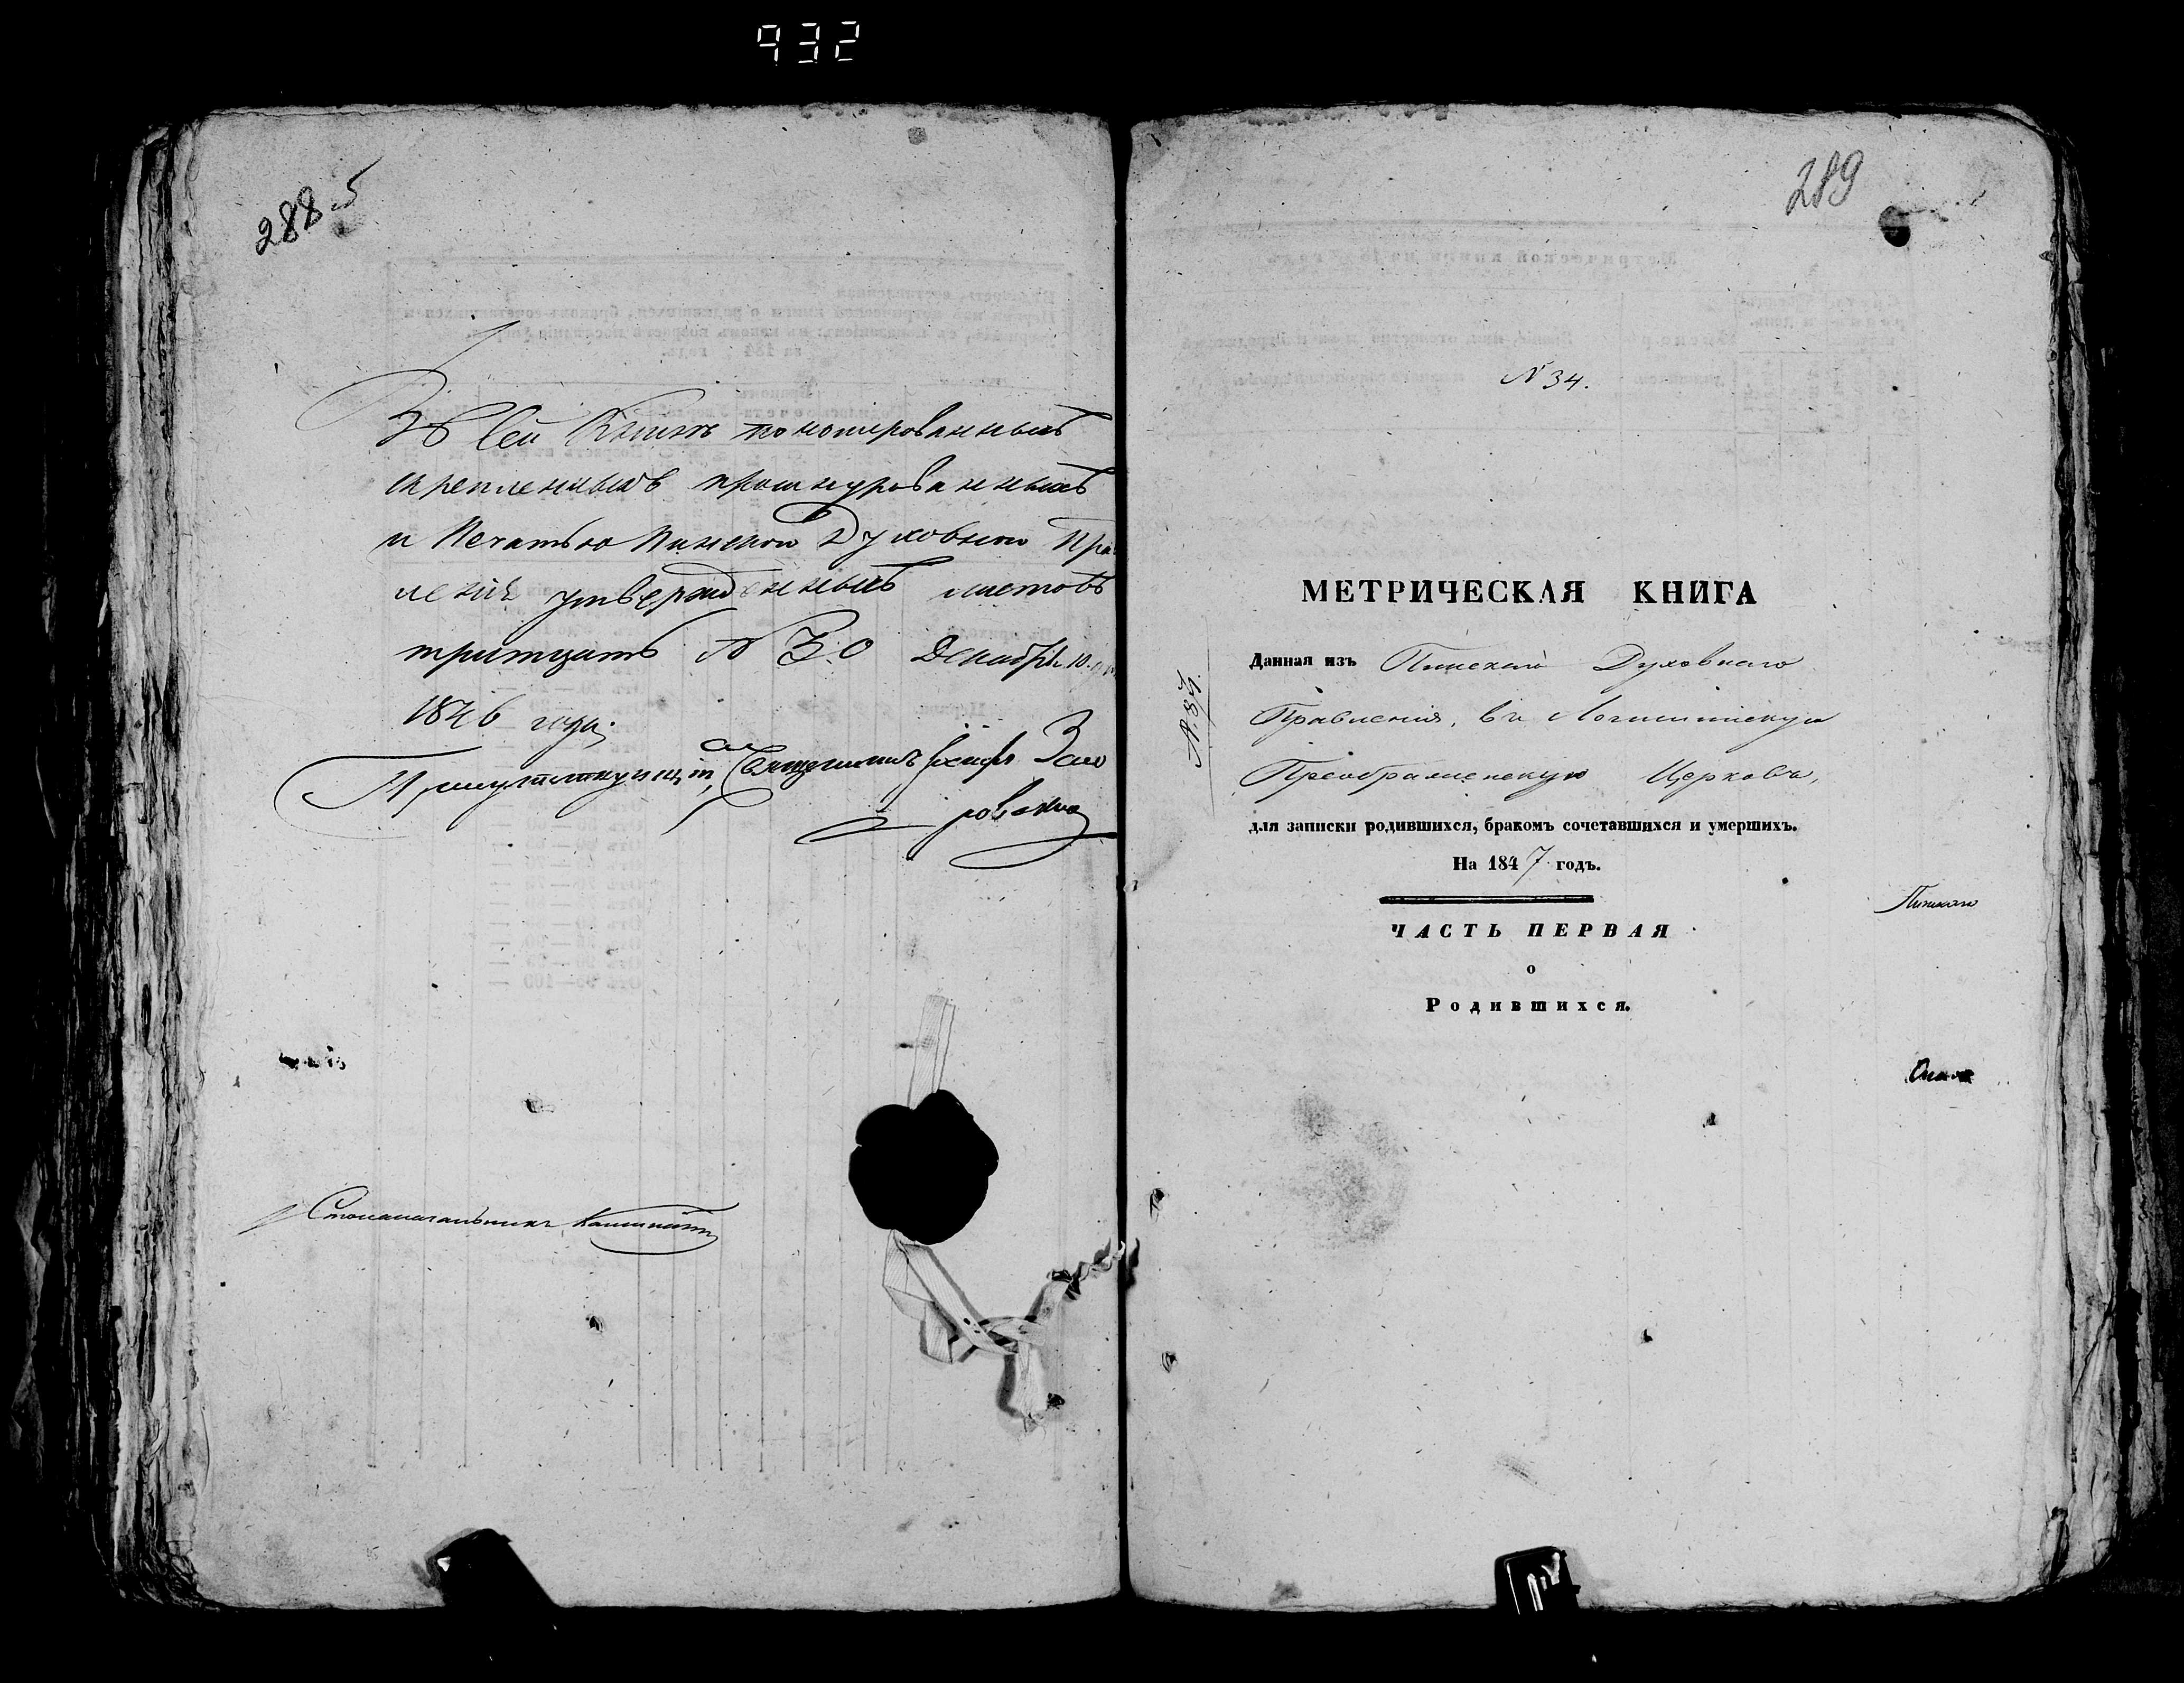 932
288
Въ сей Книгѣ пономерованныхъ
скрепленныхъ прошнурованныхъ
и Печатью Пинскои Духовнои Пра
ленія утвержденныхъ листовъ
тритцать N 30 Декабря 10
1846 года
Присутствующій, Священникъ
Столоначальникъ
289
N 34.
МЕТРИЧЕСКАЯ КНИГА
Данная изъ Пинскаго Духовнаго
Правленія, въ Логишинскую
Преображенскую Церковь,
для записки родившихся, бракомъ сочетавшихся и умершихъ.
На 1847 годъ.
ЧАСТЬ ПЕРВАЯ
о
Родившихся.
N. 34.
Пинскаго